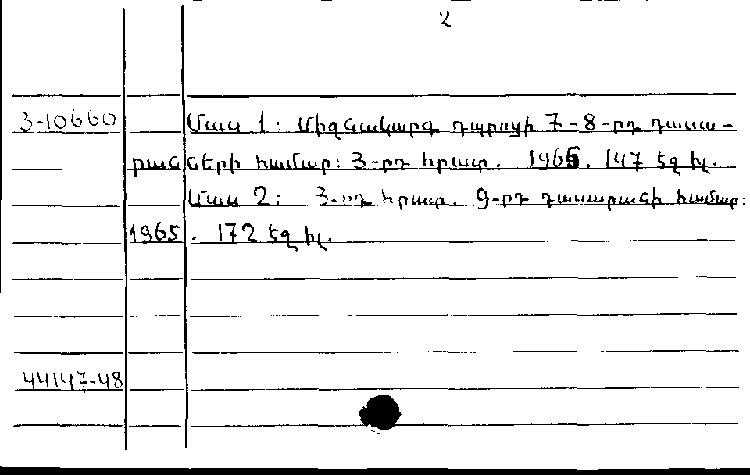 2
3-10660 Մաս 1: Միջնակարգ դպրոցի 7-8-րդ դասա-
րանների համար: 3-րդ հրատ. 1965. 147 էջ իլ.
Մաս 2: 3-րդ հրատ. 9-րդ դասարանի համար:
1965. 172 էջ իլ.
44147-48